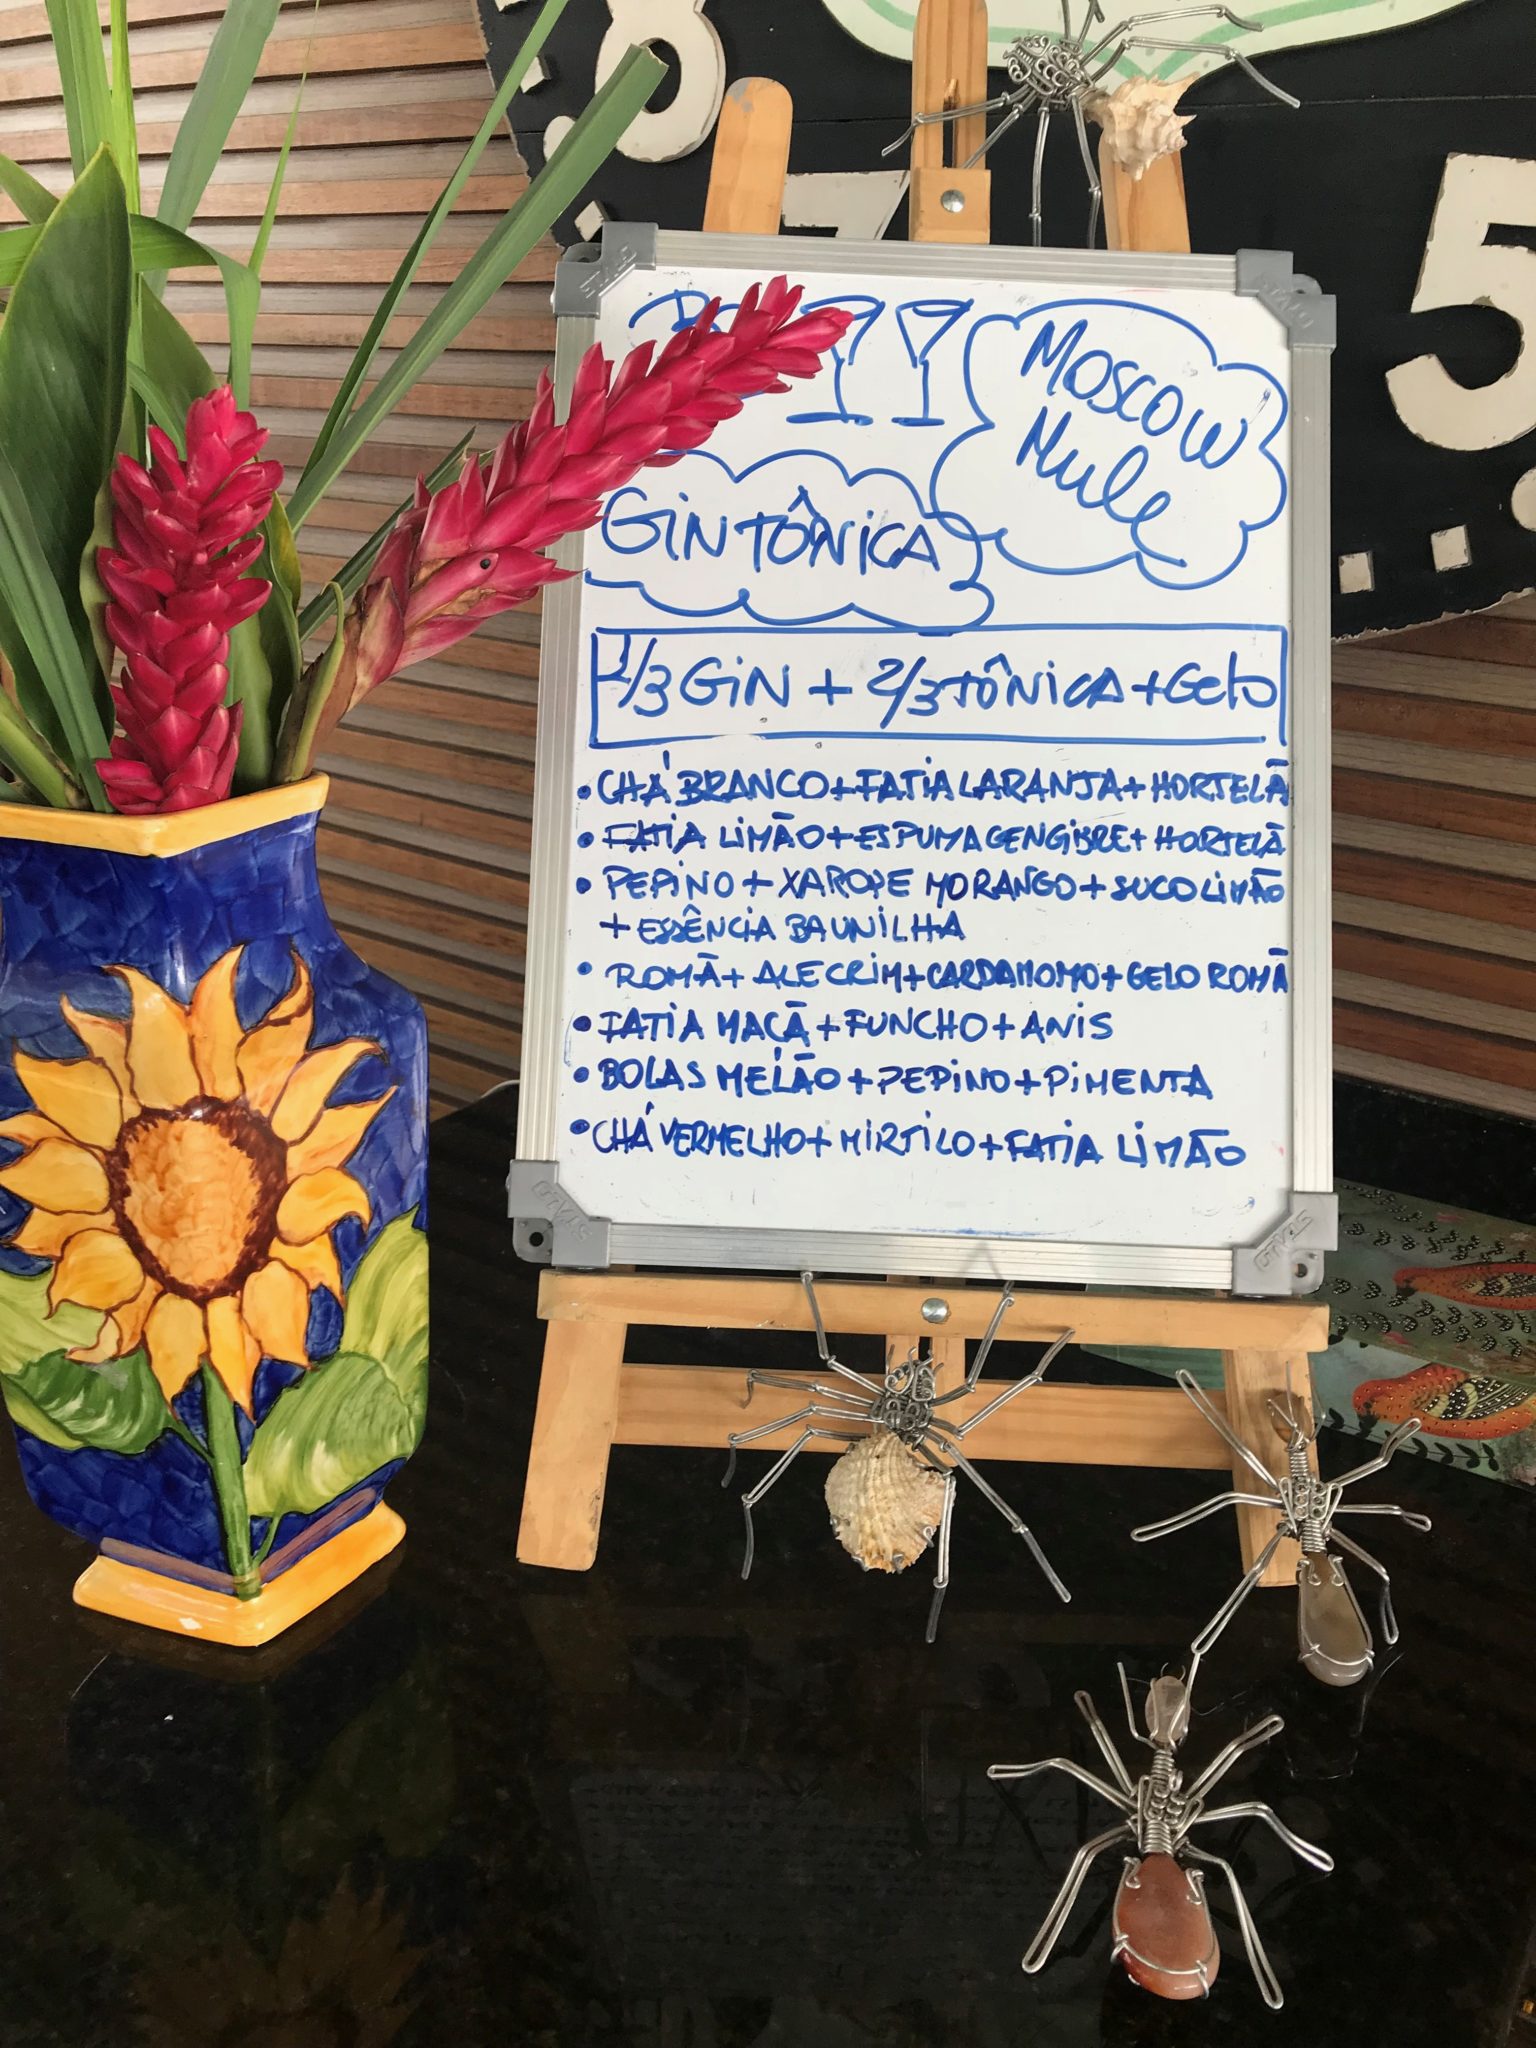 MOSCOW
MULE
GIN TÔNICA
1/3 GIN + 2/3 TÔNICA + Gelo
• CHÁ BRANCO + FATIA LARANJA + HORTELÃ
• FATIA LIMÃO + ESPUMA GENGIBRE + HORTELÃ
• PEPINO + XAROPE MORANGO + SUCO LIMÃO
+ ESSÊNCIA BAUNILHA
• ROMÃ + ALECRIM + CARDAMOMO + GELO ROMÃ
• FATIA MAÇÃ + FUNCHO + ANIS
• BOLAS MELÃO + PEPINO + PIMENTA
• CHÁ VERMELHO + MIRTILO + FATIA LIMÃO
STALO
STALO
STALO
STALO
8
7
5